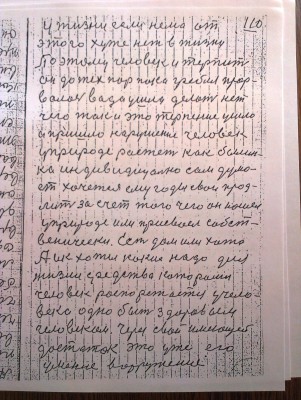 у жизни если нема от 110
этого хуже нет в жизни
Поэтому человек и терпит
он до тех пор пока гребля прор
валась вада ушла делат нет
чего так и это терпение ушло
и пришло нарушение человек
у природе растет как былин-
ка индивидуално сам дума-
ет хочется ему годы свои прод-
лит за счет того чего он нашел
у природе или присвоел собст-
венически. Ест дом или хата
А их хоти какие надо для
жизни средства которыми
человек распоряжается у чело-
века одно быт здоровым
человеком через свой имеющей
достаток это уже его
умение вооружение